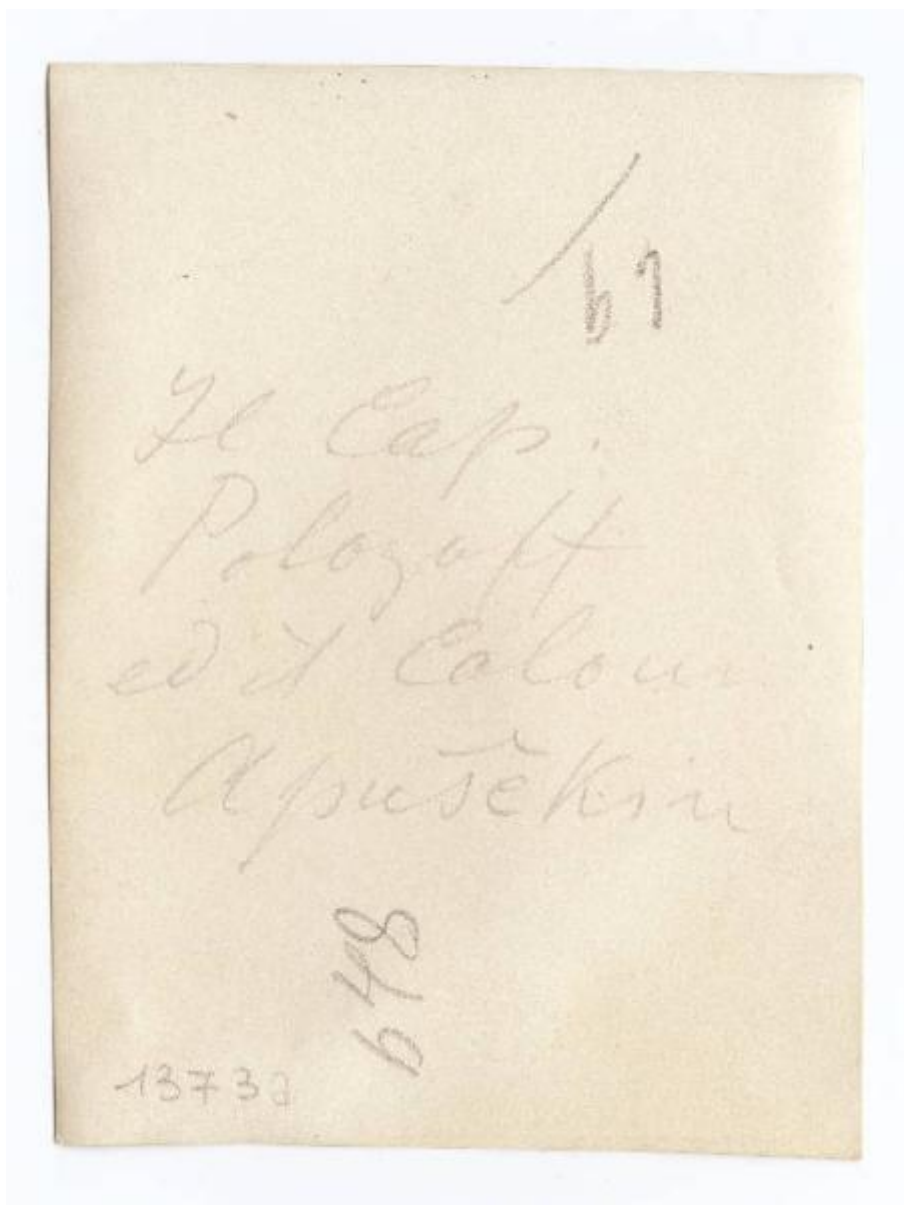 Il Cap.
Polozoff
ed il Colonn
Apušĕkin
648
13733